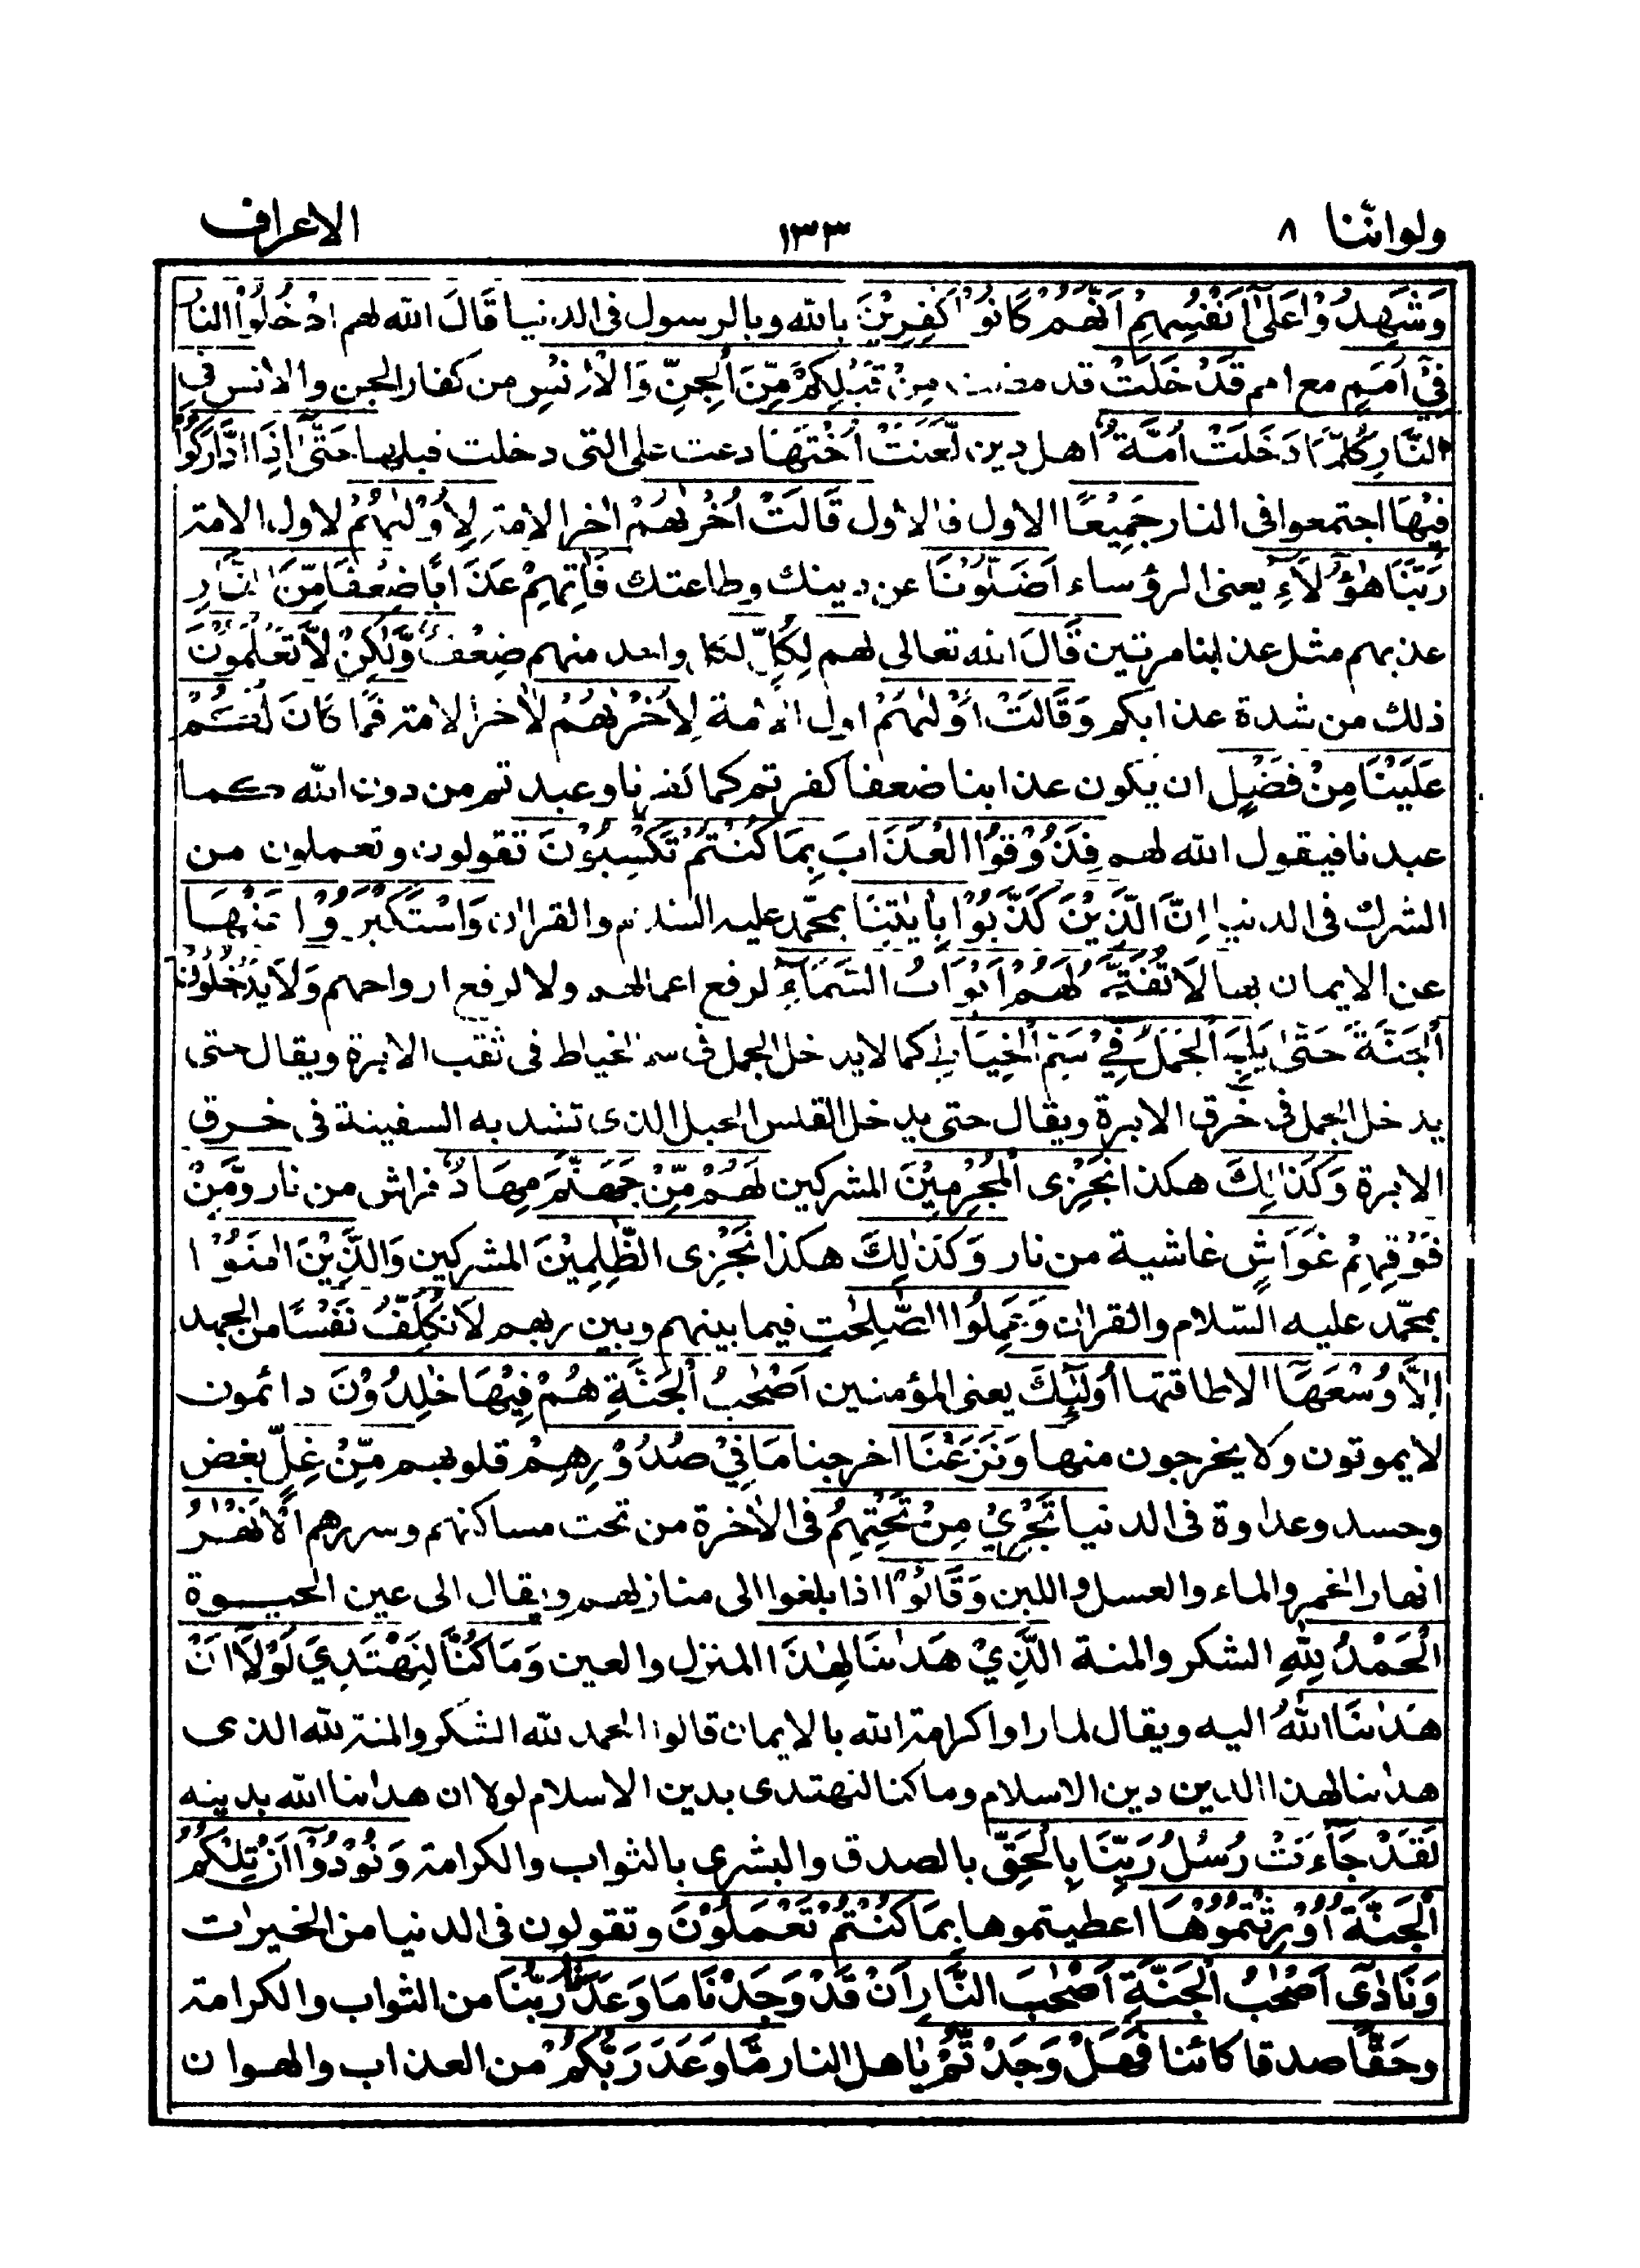 ولواننا ٨ ١٣٣ الاعراف
وَشَهِدُوْا عَلٰٓى اَنْفُسِهِمْ اَنَّهُمْ كَانُوْا كٰفِرِيْنَ بالله وبالرسول فى الدنيا قَالَ الله لهم ادْخُلُوْا النار
فِيْٓ اُمَمٍ مع امم قَدْ خَلَتْ قد مضت مِنْ قَبْلِكُمْ مِّنَ الْجِنِّ وَالْاِنْسِ من كفار الجن والانس فِي
النَّارِ كُلَّمَا دَخَلَتْ اُمَّةٌ اهل دين لَّعَنَتْ اُخْتَهَا دعت على التى دخلت قبلها حَتّٰٓى اِذَا ادَّارَكُوْا
فِيْهَا اجتمعوا فى النار جَمِيْعًا الاول فالاول قَالَتْ اُخْرٰىهُمْ اخر الامة لِاُوْلٰىهُمْ لاول الامة
رَبَّنَا هٰٓؤُلَآءِ يعنى الرؤساء اَضَلُّوْنَا عن دينك وطاعتك فَاٰتِهِمْ عَذَابًا ضِعْفًا مِّنَ النَّارِ
عذبهم مثل عذابنا مرتين قَالَ الله تعالى لهم لِكُلٍّ لكل واحد منهم ضِعْفٌ وَّلٰكِنْ لَّا تَعْلَمُوْنَ
ذلك من شدة عذابكم وَقَالَتْ اُوْلٰىهُمْ اول الامة لِاُخْرٰىهُمْ لاخر الامة فَمَا كَانَ لَكُمْ
عَلَيْنَا مِنْ فَضْلٍ ان يكون عذابنا ضعفا كفرتم كما كفرنا وعبدتم من دون الله كما
عبدنا فيقول الله لهم فَذُوْقُوا الْعَذَابَ بِمَا كُنْتُمْ تَكْسِبُوْنَ تقولون وتعملون من
الشرك فى الدنيا اِنَّ الَّذِيْنَ كَذَّبُوْا بِاٰيٰتِنَا بمحمد عليه السلام والقران وَاسْتَكْبَرُوْا عَنْهَا
عن الايمان بها لَا تُفَتَّحُ لَهُمْ اَبْوَابُ السَّمَآءِ لرفع اعمالهم ولا لرفع ارواحهم وَلَا يَدْخُلُوْنَ
الْجَنَّةَ حَتّٰى يَلِجَ الْجَمَلُ فِيْ سَمِّ الْخِيَاطِ كما لا يدخل الجمل فى سم الخياط فى ثقب الابرة ويقال حتى
يدخل الجمل فى خرق الابرة ويقال حتى يدخل القلس الحبل الذى تشد به السفينة فى خرق
الابرة وَكَذٰلِكَ هكذا نَجْزِى الْمُجْرِمِيْنَ المشركين لَهُمْ مِّنْ جَهَنَّمَ مِهَادٌ فراش من نار وَّمِنْ
فَوْقِهِمْ غَوَاشٍ غاشية من نار وَكَذٰلِكَ هكذا نَجْزِى الظّٰلِمِيْنَ المشركين وَالَّذِيْنَ اٰمَنُوْا
بمحمّد عليه السّلام والقران وَعَمِلُوا الصّٰلِحٰتِ فيما بينهم وبين ربهم لَا نُكَلِّفُ نَفْسًا من الجهد
اِلَّا وُسْعَهَآ الا طاقتها اُولٰٓئِكَ يعنى المؤمنين اَصْحٰبُ الْجَنَّةِ هُمْ فِيْهَا خٰلِدُوْنَ دائمون
لا يموتون ولا يخرجون منها وَنَزَعْنَا اخرجنا مَا فِيْ صُدُوْرِهِمْ قلوبهم مِّنْ غِلٍّ بغض
وحسد وعداوة فى الدنيا تَجْرِيْ مِنْ تَحْتِهِمُ فى الاٰخرة من تحت مساكنهم وسررهم الْاَنْهٰرُ
انهار الخمر والماء والعسل واللبن وَقَالُوْا اذا بلغوا الى منازلهم ويقال الى عين الحيوة
الْحَمْدُ لِلّٰهِ الشكر والمنة الَّذِيْ هَدٰىنَا لِهٰذَا المنزل والعين وَمَا كُنَّا لِنَهْتَدِيَ لَوْلَآ اَنْ
هَدٰىنَا اللّٰهُ اليه ويقال لما راوا كرامة الله بالايمان قالوا الحمد لله الشكر والمنة لله الذى
هدٰىنا لهذا الدين دين الاسلام وما كنا لنهتدى بدين الاسلام لولا ان هدٰىنا الله بدينه
لَقَدْ جَآءَتْ رُسُلُ رَبِّنَا بِالْحَقِّ بالصدق والبشرى بالثواب والكرامة وَنُوْدُوْٓا اَنْ تِلْكُمُ
الْجَنَّةُ اُوْرِثْتُمُوْهَا اعطيتموها بِمَا كُنْتُمْ تَعْمَلُوْنَ وتقولون فى الدنيا من الخيرات
وَنَادٰٓى اَصْحٰبُ الْجَنَّةِ اَصْحٰبَ النَّارِ اَنْ قَدْ وَجَدْنَا مَا وَعَدَنَا رَبُّنَا من الثواب والكرامة
وحَقًّا صدقا كائنا فَهَلْ وَجَدْتُّمْ يٰاهل النار مَّا وَعَدَ رَبُّكُمْ من العذاب والهوان